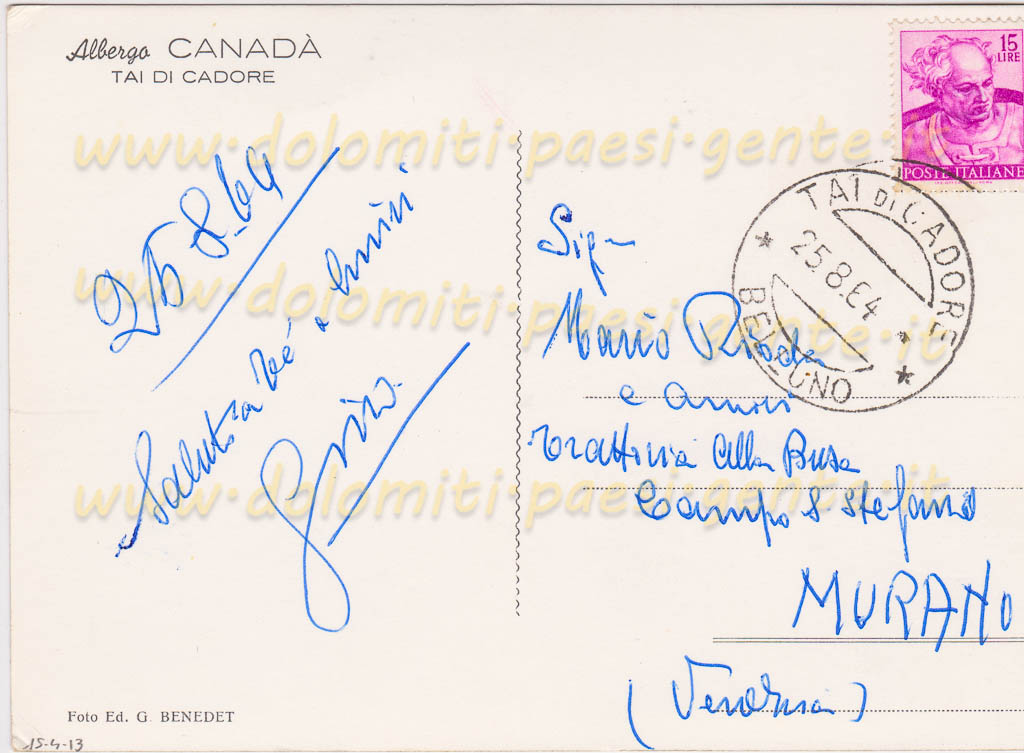 Albergo CANADÀ
TAI DI CADORE
15 LIRE
POSTE ITALIANE
TAI DI CADORE
25.8.64
BELLUNO
www.dolomiti-paesi-gente.it
www.dolomiti-paesi-gente.it
www.dolomiti-paesi-gente.it
25 8-64
Saluti a te e amici
Gino
Sig.
Mario
e amici
Trattoria Alla Busa
Campo S. Stefano
MURANO
(Venezia)
Foto Ed. G. BENEDET
15-4-13